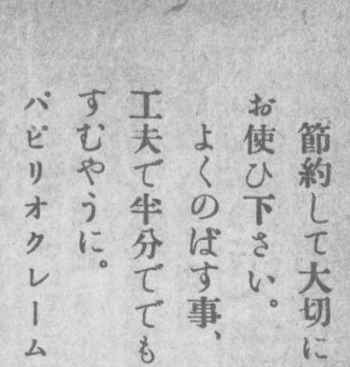 節約して大切に
お使ひ下さい。
よくのばす事、
工夫で半分ででも
すむやうに。
パピリオクレーム